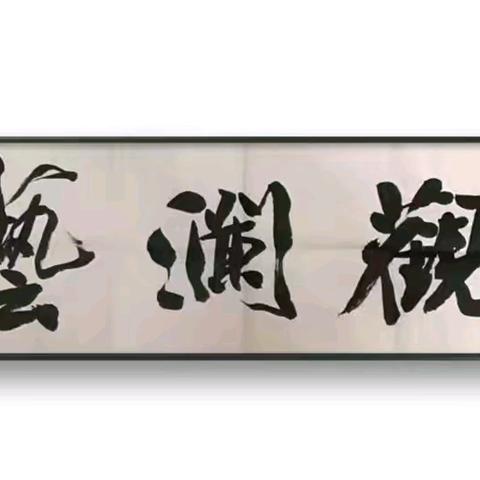 觀瀾藝